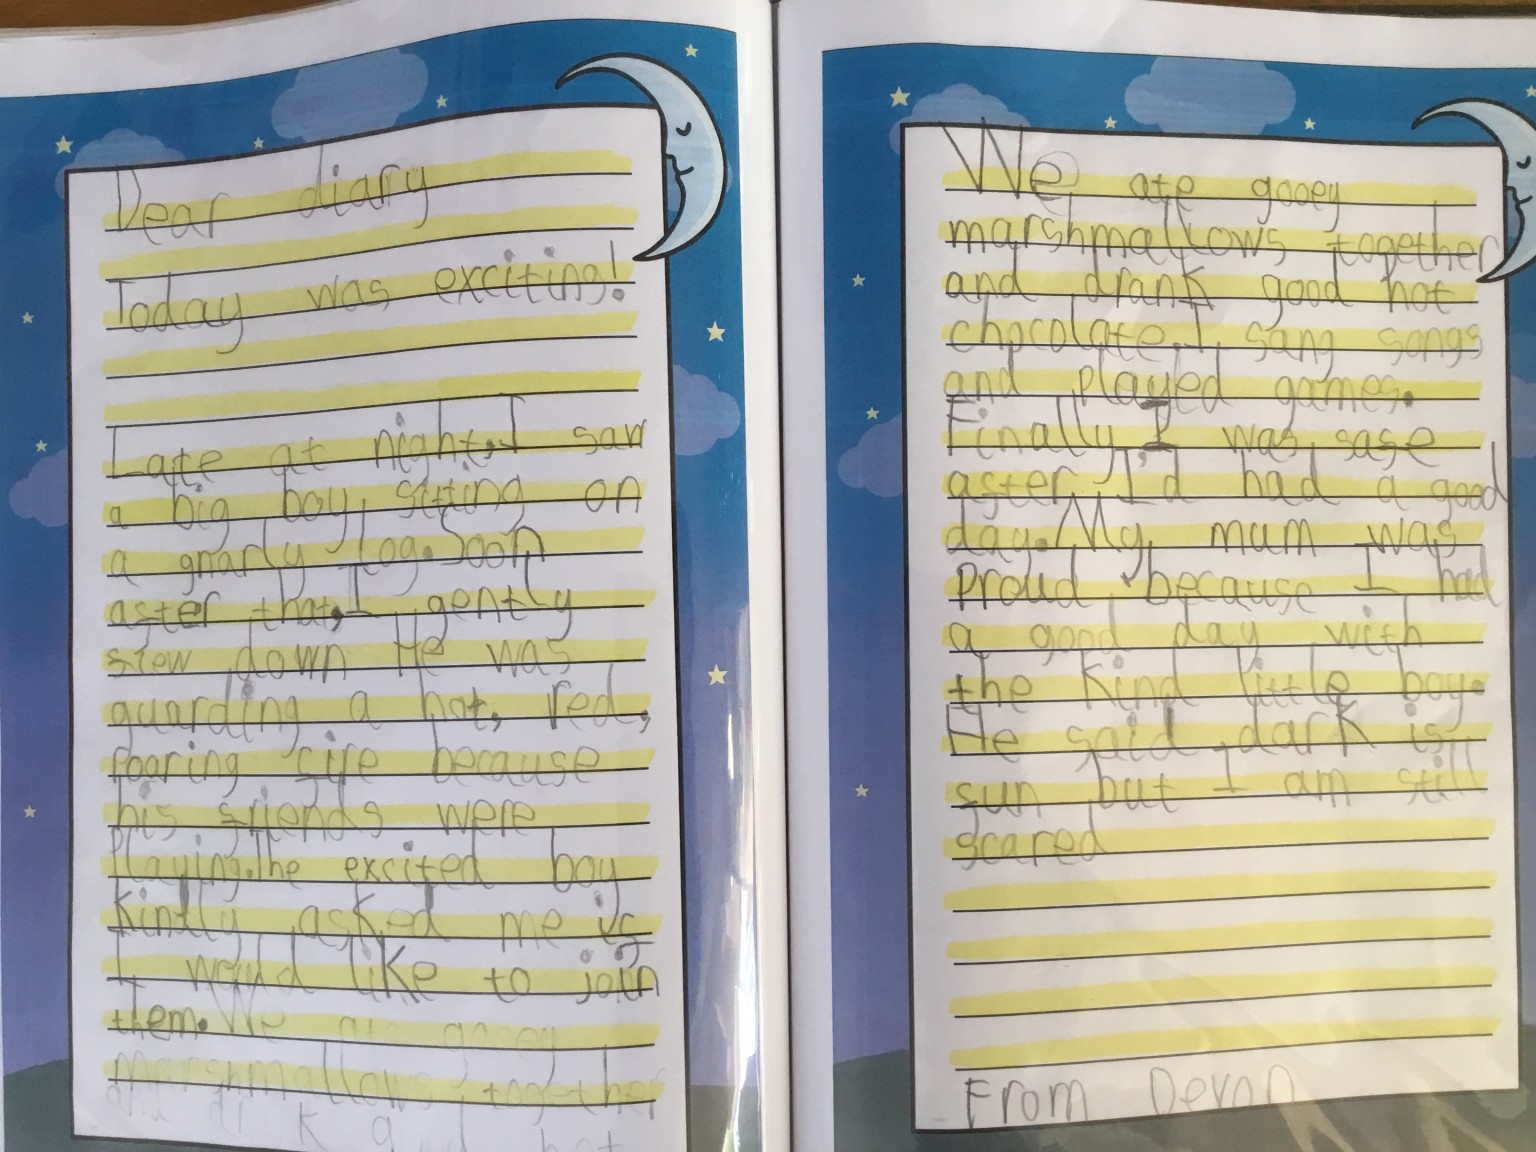 Dear diary
Today was exciting!
Late at night, I saw
a big boy sitting on
a gnarly log. Soon
aster that, I gently
slew down He was
guarding a hot, red,
roaring fire because
his friends were
Playing. The excited boy
Kindly asked me is
I would like to join
them. We ate gooey
marshmallows together
and drank good hot
We ate gooey
marshmallows together
and drank good hot
chocolate. I sang songs
and played games.
Finally I was sase
aster I'd had a good
day. My mum was
Proud because I had
a good day with
the Kind little boy.
He said dark is
sun but I am still
scared
From Devon